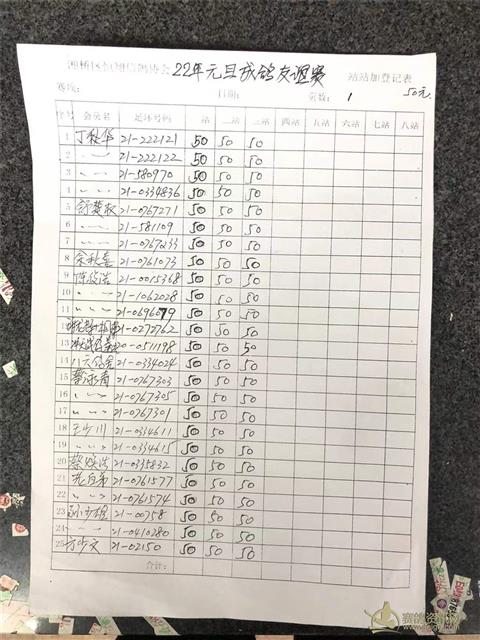 22年元旦成鸽友谊赛 站站加登记表
赛线: 日期: 页数: 1 50元.
序号 会员名 足环号码 一站 二站 三站 四站 五站 六站 七站 八站
1 丁秋华 21-222121 50 50 50
2 〃 21-222122 50 50 50
3 〃 21-580970 50 50 50
4 〃 21-0334836 50 50 50
5 21-0767271 50 50 50
6 〃 21-581109 50 50 50
7 〃 21-0767233 50 50 50
8 余秋喜 21-0761073 50 50 50
9 陈俊浩 21-0015368 50 50 50
10 〃 21-1062028 50 50 50
11 〃 21-0696079 50 50 50
12 21-0272762 50 50 50
13 20-0511198 50 50 50
14 八六鸽舍 21-0334024 50 50 50
15 21-0767303 50 50 50
16 〃 21-0767305 50 50 50
17 〃 21-0767301 50 50 50
18 王少川 21-0334611 50 50 50
19 〃 21-0334615 50 50 50
20 蔡焕浩 21-0335832 50 50 50
21 21-0761577 50 50 50
22 〃 21-0761574 50 50 50
23 21-00758 50 50 50
24 〃 21-0410280 50 50 50
25 方少文 21-02150 50 50 50
合计: